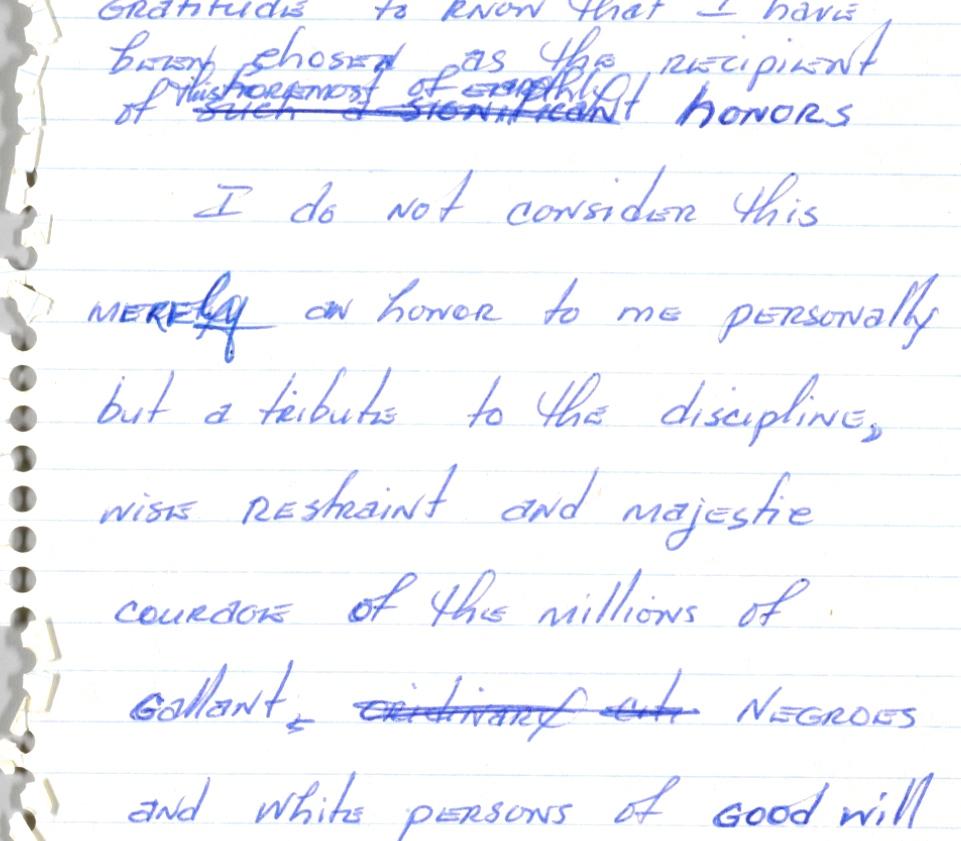 GRATITUDE to KNOW that I have
been chosen as the recipient
this foremost of earthly
of such a significant honors
I do not consider this
merely an honor to me personally
but a tribute to the discipline,
wise restraint and majestic
courage of the millions of
Gallant, ordinary citi Negroes
and white persons of good will